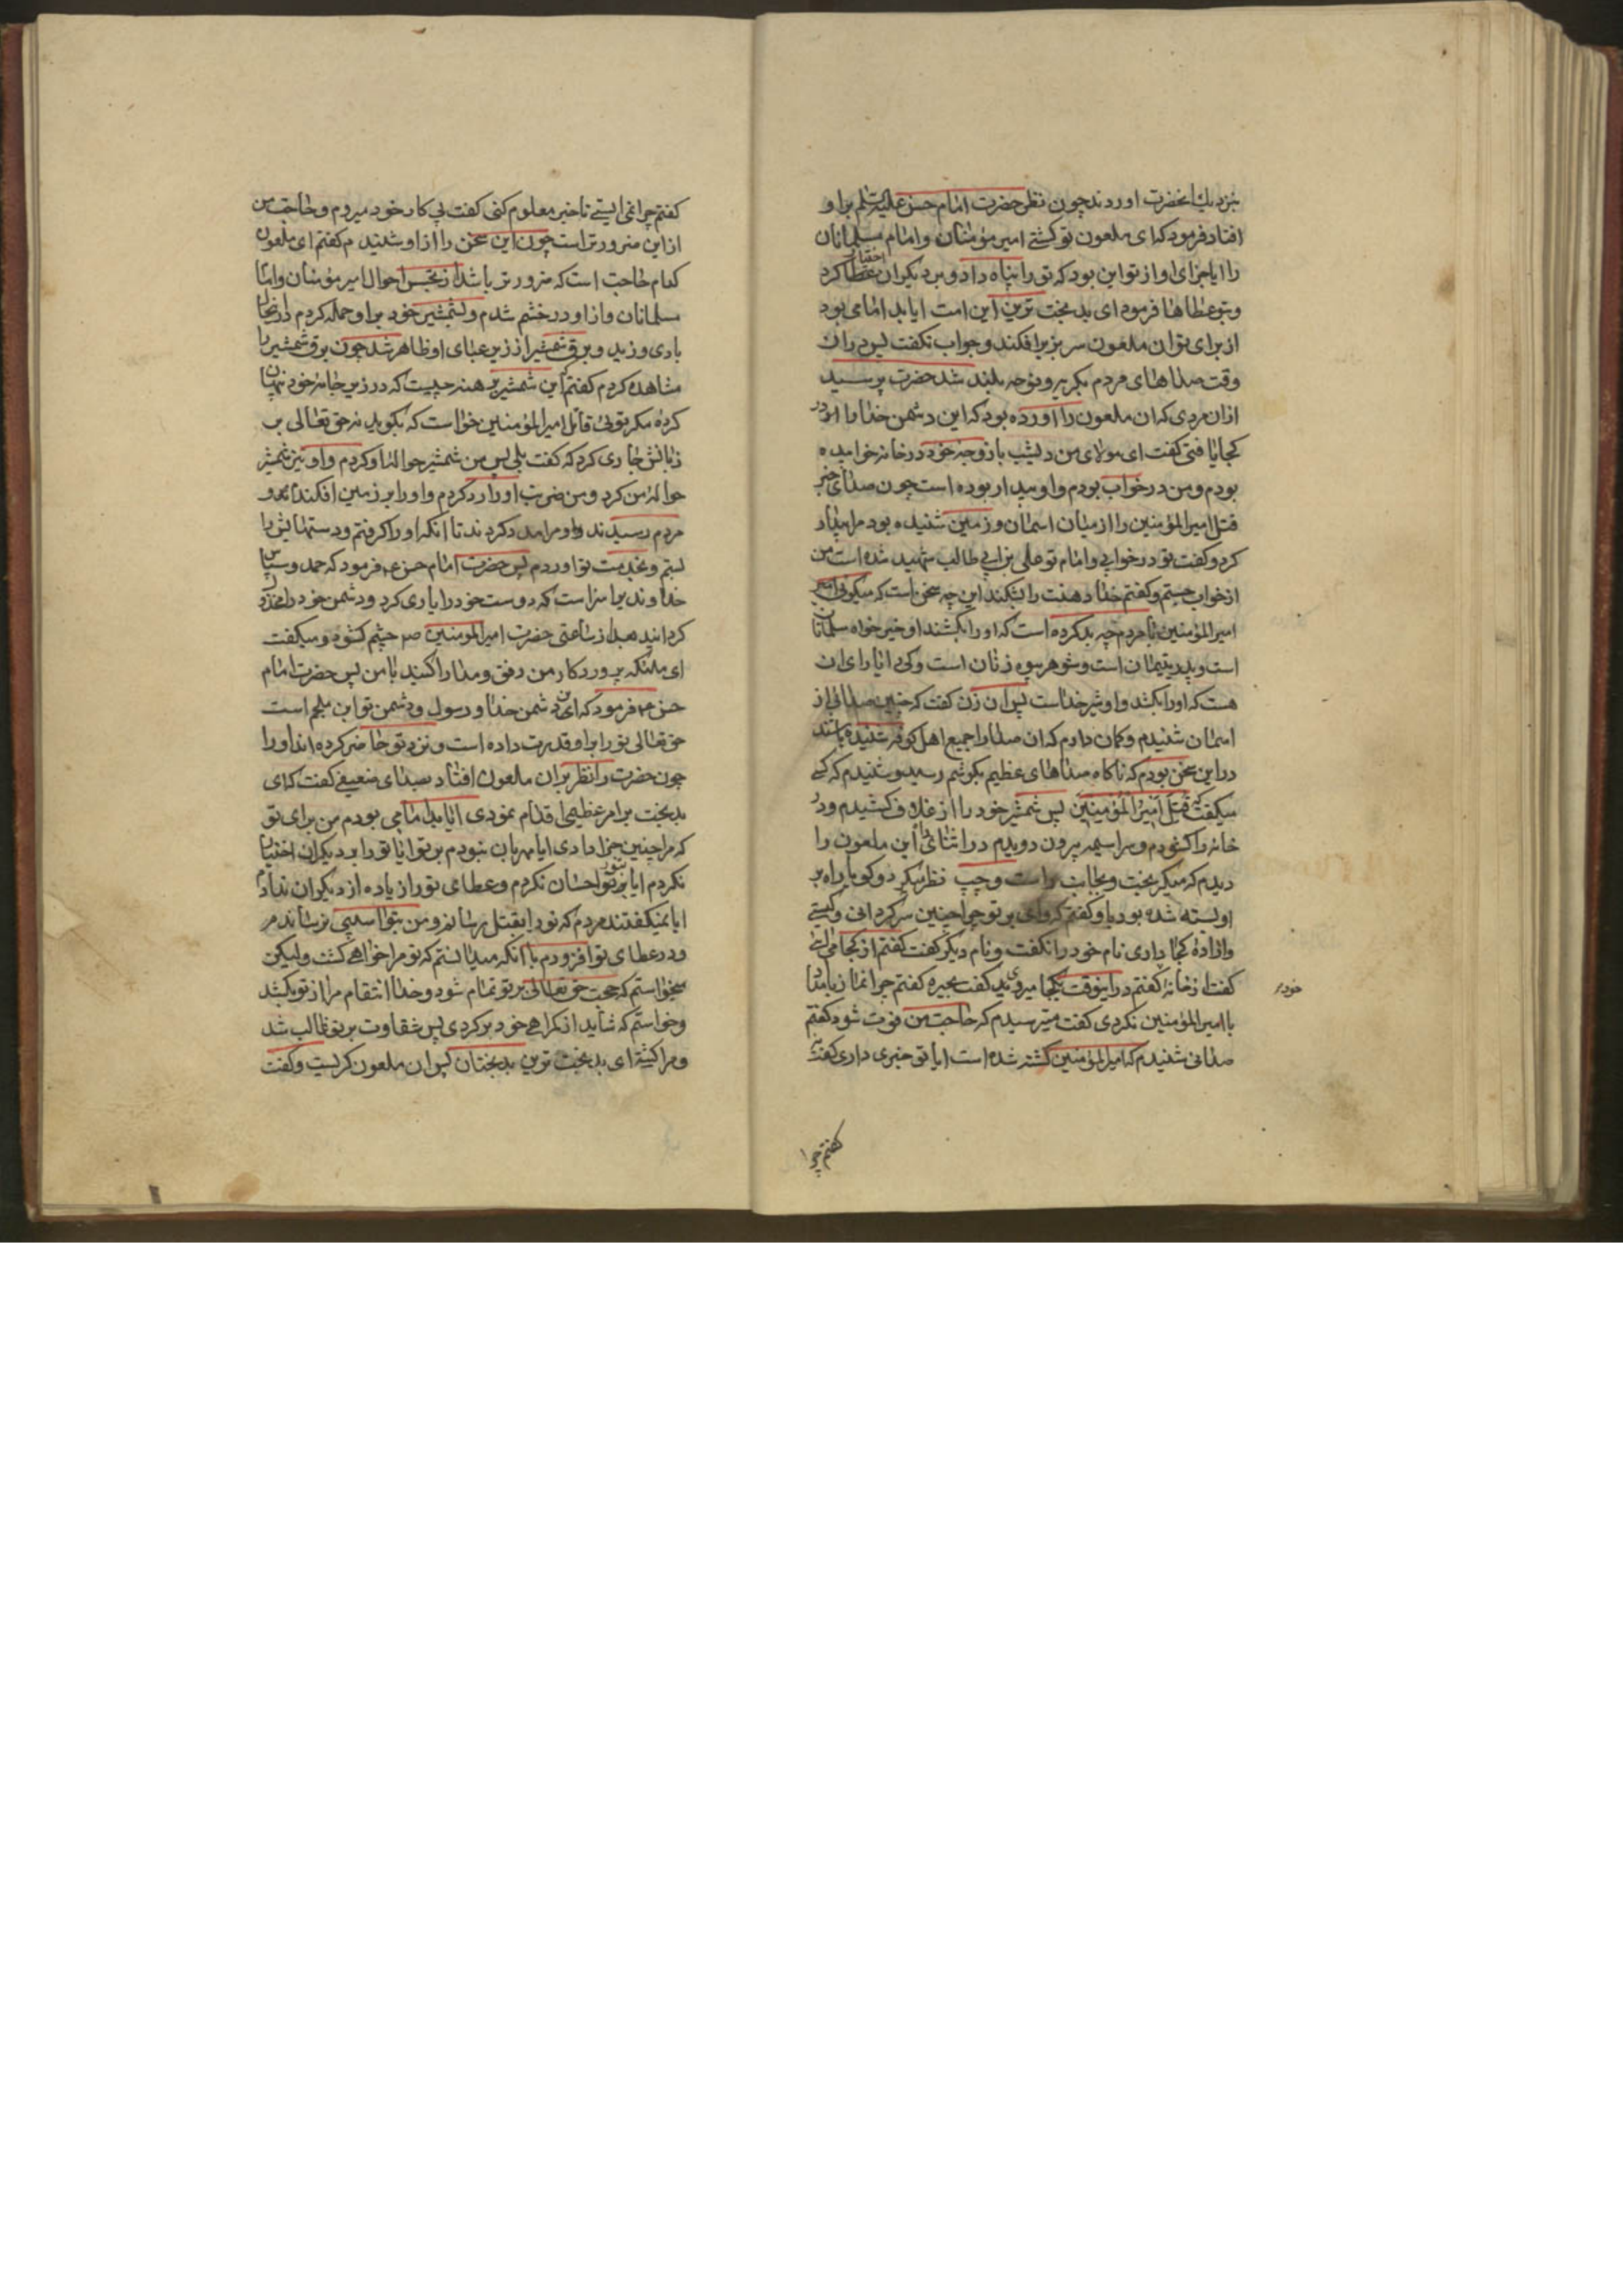 بنزدیك انحضرت اوردند چون نظر حضرت امام حسن علیه السلم بر او
افتاد فرمود که ای ملعون تو کشتی امیر مؤمنان و امام مسلمانان
را ایا جزای او از تو این بود که تو را پناه داد و بر دیکران اختیار کرد
و بتو عطاها فرمود ای بد بخت ترین این امت ایا بد امامی بود
از برای تو ان ملعون سر بزیر افکند و جواب نکفت پس در ان
وقت صداهای مردم بکریه و نوحه بلند شد حضرت پرسید
از ان مردی که ان ملعون را اورده بود که این دشمن خدا را در
کجا یافتی کفت ای مولای من دیشب با زوجه خود در خانه خوابیده
بودم و من در خواب بودم و او بیدار بوده است چون صدای خبر
قتل امیر المؤمنین را از میان اسمان و زمین شنیده بود مرا بیدار
کرد و کفت تو در خوابی و امام تو علی بن ابی طالب شهید شده است من
از خواب جستم و کفتم خدا دهنت را بشکند این چه سخن است که میکوئی
امیر المؤمنین با مردم چه بد کرده است که او را بکشند او خیر خواه مسلمانان
است و پدر یتیمان است و شوهر بیوه زنان است و کی را یارای ان
هست که او را بکشد و او شیر خداست پس ان زن کفت که چنین صدائی از
اسمان شنیدم و کمان دارم که ان صدا را جمیع اهل کوفه شنیده باشند
در این سخن بودم که ناکاه صداهای عظیم بکوشم رسید و شنیدم که کسی
میکفت که قتل امیر المؤمنین پس شمشیر خود را از غلاف کشیدم و در
خانه را کشودم و سراسیمه بیرون دویدم در اثنای راه این ملعون را
دیدم که میکریخت و بجانب راست و چپ نظر میکرد و کویا راه بر
او بسته شده بود باو کفتم که وای بر تو چرا چنین سرکردانی و کیستی
و اراده کجا داری نام خود را نکفت و نام دیکر کفت کفتم از کجا می ائی
کفت از خانه کفتم در اینوقت بکجا میروی کفت بحیره کفتم چرا نماز بامداد
خود
با امیر المؤمنین نکردی کفت میترسیدم که حاجت من فوت شود کفتم
صدائی شنیدم که امیر المؤمنین کشته شده است ایا تو خبری داری کفت نه
کفتم چرا
کفتم چرا نمی ایستی تا خبر معلوم کنی کفت پی کار خود میروم و حاجت من
از این ضرورتر است چون این سخن را از او شنیدم کفتم ای ملعون
کدام حاجت است که ضرورتر باشد از تجسس احوال امیر مؤمنان و امام
مسلمانان و از او در خشم شدم و بشمشیر خود بر او حمله کردم در انحال
بادی وزید و برق شمشیر از زیر عبای او ظاهر شد چون برق شمشیر را
مشاهده کردم کفتم این شمشیر برهنه چیست که در زیر جامه خود پنهان
کرده مکر توئی قاتل امیر المؤمنین خواست که بکوید نه حق تعالی بر
زبانش جاری کرد که کفت بلی پس من شمشیر حواله او کردم و او نیز شمشیر
حواله من کرد و من ضربت او را رد کردم و او را بر زمین افکندم و
مردم رسیدند و مرا مدد کردند تا انکه او را کرفتم و دستهایش را
بستم و بخدمت تو اوردم پس حضرت امام حسن ع فرمود که حمد و سپاس
خداوندیرا سزاست که دوست خود را یاری کرد و دشمن خود را مخذول
کردانید بعد از ساعتی حضرت امیر المومنین ص چشم کشود و میکفت
ای ملئکه پروردکار من رفق و مدارا کنید با من پس حضرت امام
حسن ع فرمود که این دشمن خدا و رسول و دشمن تو ابن ملجم است
حق تعالی تو را بر او قدرت داده است و نزد تو حاضر کرده اند او را
چون حضرت را نظر بر ان ملعون افتاد بصدای ضعیفی کفت که ای
بدبخت بر امر عظیمی اقدام نمودی ایا بد امامی بودم من برای تو
که مرا چنین جزا دادی ایا مهربان نبودم بر تو ایا تو را بر دیکران اختیار
نکردم ایا بر تو احسان نکردم و عطای تو را زیاده از دیکران ندادم
ایا نمیکفتند مردم که تو را بقتل رسانم و من بتو اسیبی نرساندم
و در عطای تو افزودم با انکه میدانستم که تو مرا خواهی کشت و لیکن
میخواستم که حجت حق تعالی بر تو تمام شود و خدا انتقام مرا از تو بکشد
و خواستم که شاید از کمراهی خود برکردی پس شقاوت بر تو غالب شد
و مرا کشتی ای بدبخت ترین بدبختان پس ان ملعون کریست و کفت